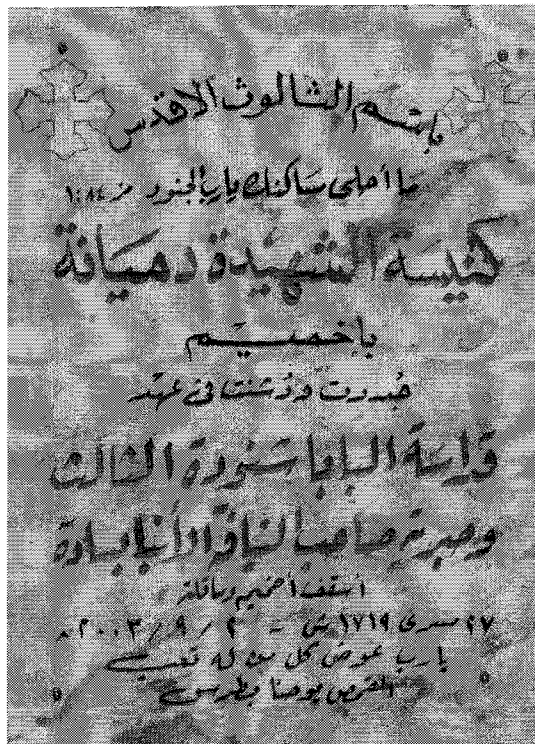 باسم الثالوث الاقدس
ما أحلى مساكنك يارب الجنود مز ٨٤ : ١
كنيسة الشهيدة دميانة
بإخميم
جددت ودشنت فى عهد
قداسة البابا شنودة الثالث
وحبرية صاحب النيافة الأنبا بسادة
أسقف أخميم وساقلته
٢٧ مسرى ١٧١٩ ش = ٢ / ٩ / ٢٠٠٣ م
يارب عوض كل من له تعب
القمص يوحنا بطرس